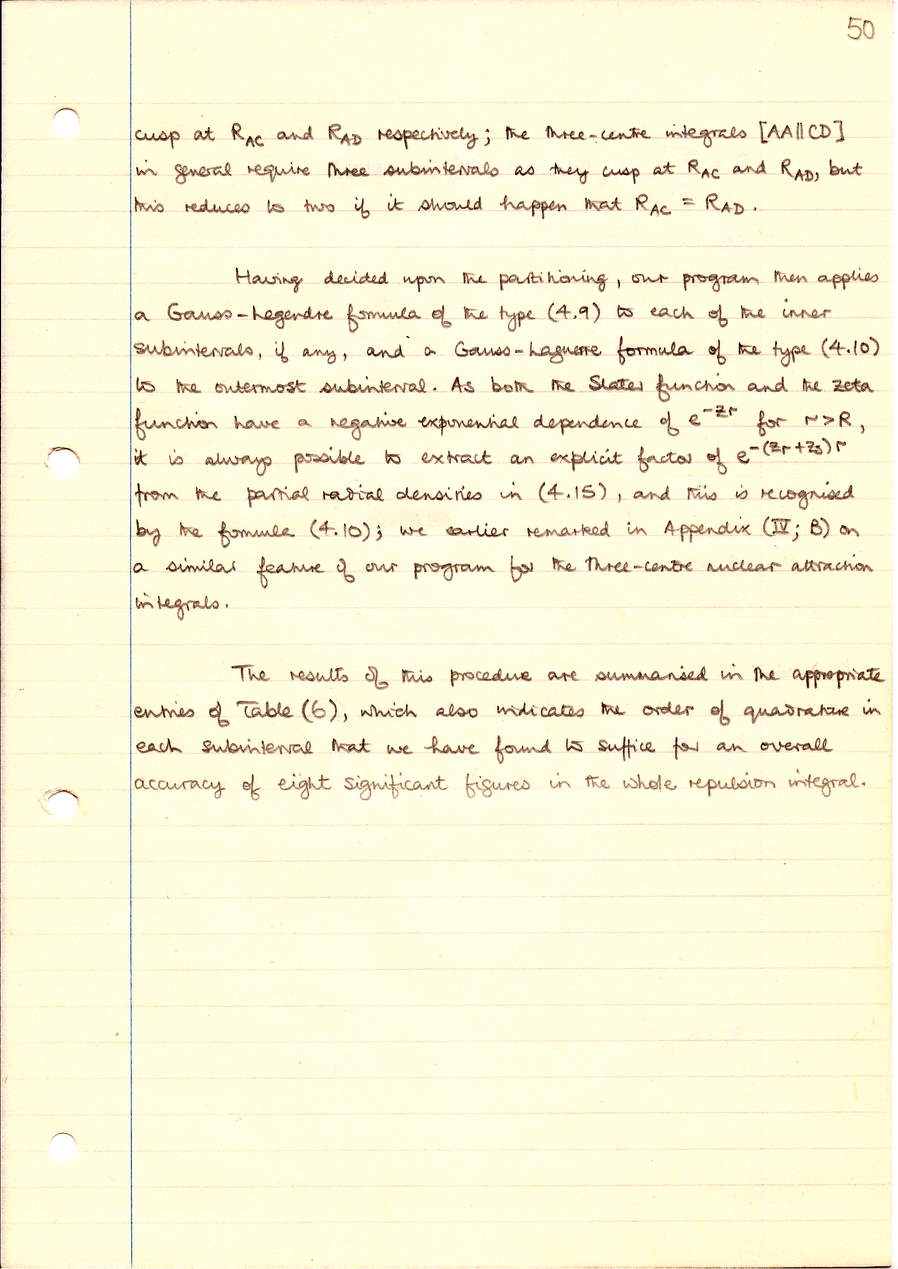 50
cusp at R_AC and R_AD respectively; the three-centre integrals [AA||CD]
in general require three subintervals as they cusp at R_AC and R_AD, but
this reduces to two if it should happen that R_AC = R_AD.
Having decided upon the partitioning, our program then applies
a Gauss-Legendre formula of the type (4.9) to each of the inner
subintervals, if any, and a Gauss-Laguerre formula of the type (4.10)
to the outermost subinterval. As both the Slater function and the zeta
function have a negative exponential dependence of e^-zr for r > R,
it is always possible to extract an explicit factor of e^-(zr+zs)r
from the partial radial densities in (4.15), and this is recognised
by the formula (4.10); we earlier remarked in Appendix (IV; B) on
a similar feature of our program for the three-centre nuclear attraction
integrals.
The results of this procedure are summarised in the appropriate
entries of Table (6), which also indicates the order of quadrature in
each subinterval that we have found to suffice for an overall
accuracy of eight significant figures in the whole repulsion integral.